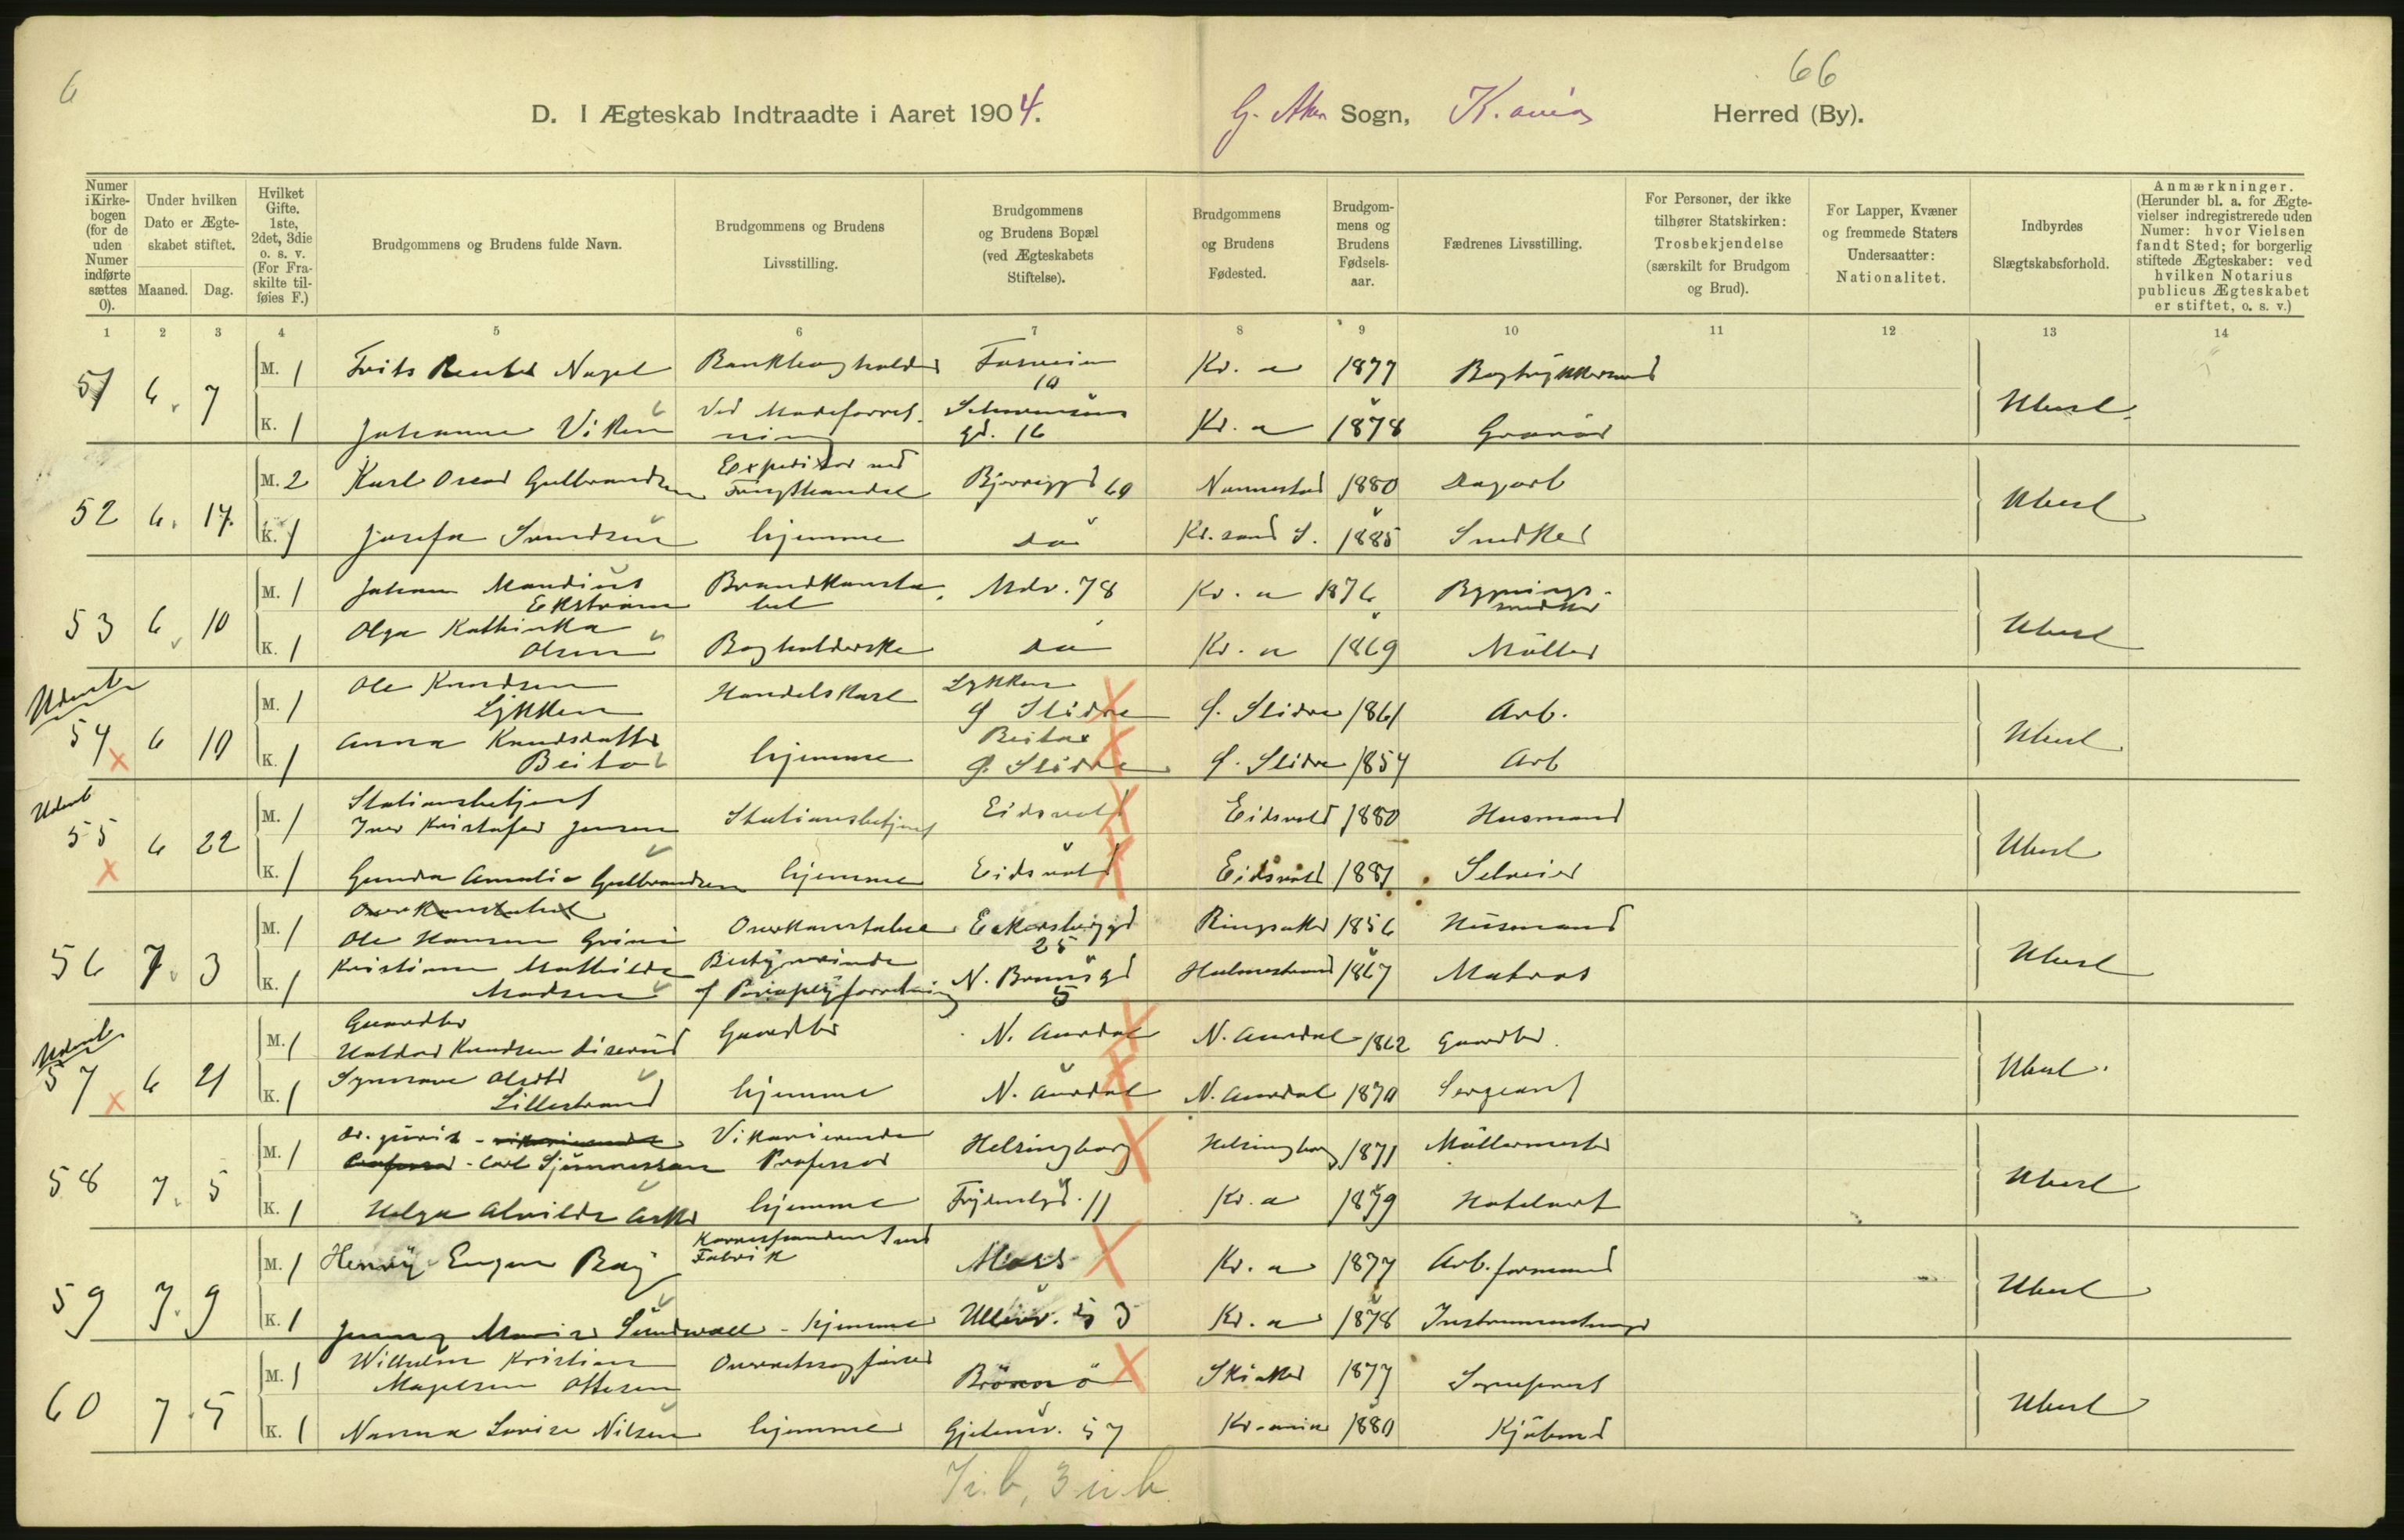 6
66
D. I Ægteskab Indtraadte i Aaret 1904. G. Aker Sogn, K.ania Herred (By).
Numer i Kirke-bogen (for de uden Numer indførte sættes 0).
Under hvilken Dato er Ægte-skabet stiftet.
Maaned. Dag.
Hvilket Gifte. 1ste, 2det, 3die o. s. v. (For Fra-skilte til-føies F.)
Brudgommens og Brudens fulde Navn.
Brudgommens og Brudens Livsstilling.
Brudgommens og Brudens Bopæl (ved Ægteskabets Stiftelse).
Brudgommens og Brudens Fødested.
Brudgom-mens og Brudens Fødsels-aar.
Fædrenes Livsstilling.
For Personer, der ikke tilhører Statskirken: Trosbekjendelse (særskilt for Brudgom og Brud).
For Lapper, Kvæner og fremmede Staters Undersaatter: Nationalitet.
Indbyrdes Slægtskabsforhold.
Anmærkninger. (Herunder bl. a. for Ægte-vielser indregistrerede uden Numer: hvor Vielsen fandt Sted; for borgerlig stiftede Ægteskaber: ved hvilken Notarius publicus Ægteskabet er stiftet, o. s. v.)
1 2 3 4 5 6 7 8 9 10 11 12 13 14
51 6. 7 M. 1 Frits Nagel Bankbogholder 10 Kr. a 1877 Ubesl.
K. 1 Johanne Viken Ved Modeforret-ning gd. 16 Kr. a 1878 Gravør
52 6. 17. M. 2 Karl Oscar Gulbrandsen Expeditør ved Bjerregd 60 Nannestad 1880 Dagarb Ubesl
K. 1 Josefa Svendsen hjemme do Kr.sand S. 1885 Snedker
53 6 10 M. 1 Johan Mandius Ekstrøm Brandkonsta-bel Mdv. 78 Kr. a 1876 Bygnings-snedker Ubesl
K. 1 Olga Kathinka Olsen Bogholderske do Kr. a 1869 Møller
Udenb
54 6 10 M. 1 Ole Knudsen Lykken Handelskarl Lykken Ø Slidre Ø. Slidre 1861 Arb. Ubesl
K. 1 Anna Knudsdatter Beito hjemme Beito Ø. Slidre Ø. Slidre 1854 Arb
Udenb
55 6 22 M. 1 Stationsbetjent Iver Kristofer Jensen Stationsbetjent Eidsvold Eidsvold 1880 Husmand Ubesl
K. 1 Gunda Amalie Gulbrandsen hjemme Eidsvold Eidsvold 1881 Selveier
56 7. 3 M. 1 Overkonstabel Ole Hansen Grini Overkonstabel Eckersberggd 25 Ringsaker 1856 Husmand Ubesl
K. 1 Kristiane Mathilde Madsen Bestyrerinde af Paraplyforretning N. Brunsgd 5 Holmestrand 1867 Matros
Udenb
57 6 21 M. 1 Gaardbr Haldor Knudsen Gaardbr N. Aurdal N. Aurdal 1862 Gaardbr. Ubesl.
K. 1 Synnøve Olsdtr Lillestrand hjemme N. Aurdal N. Aurdal 1870 Sergeant
58 7. 5 M. 1 Dr. juris - vikarierende Professor - Carl Vikarierende Professor Helsingborg Helsingborg 1871 Møllermester Ubesl
K. 1 Helga Alvilde Asker hjemme Frydenlgd. 11 Kr. a 1879 Hotelvert
59 7. 9 M. 1 Henry Eugen Bay Korrespondent ved Fabrik Moss Kr. a 1877 Arb.formand Ubesl
K. 1 Jenny Marie Sundvall - hjemme Ullevv. 3 Kr. a 1878
60 7. 5 M. 1 Wilhelm Kristian Magelsen Ottesen Overretssagfører Brønnø Skiaker 1877 Sogneprest Ubesl
K. 1 Nanna Lovise Nilsen hjemme Gjetemv. 57 Kr.ania 1880 Kjøbmd
7 i. b, 3 u. b.